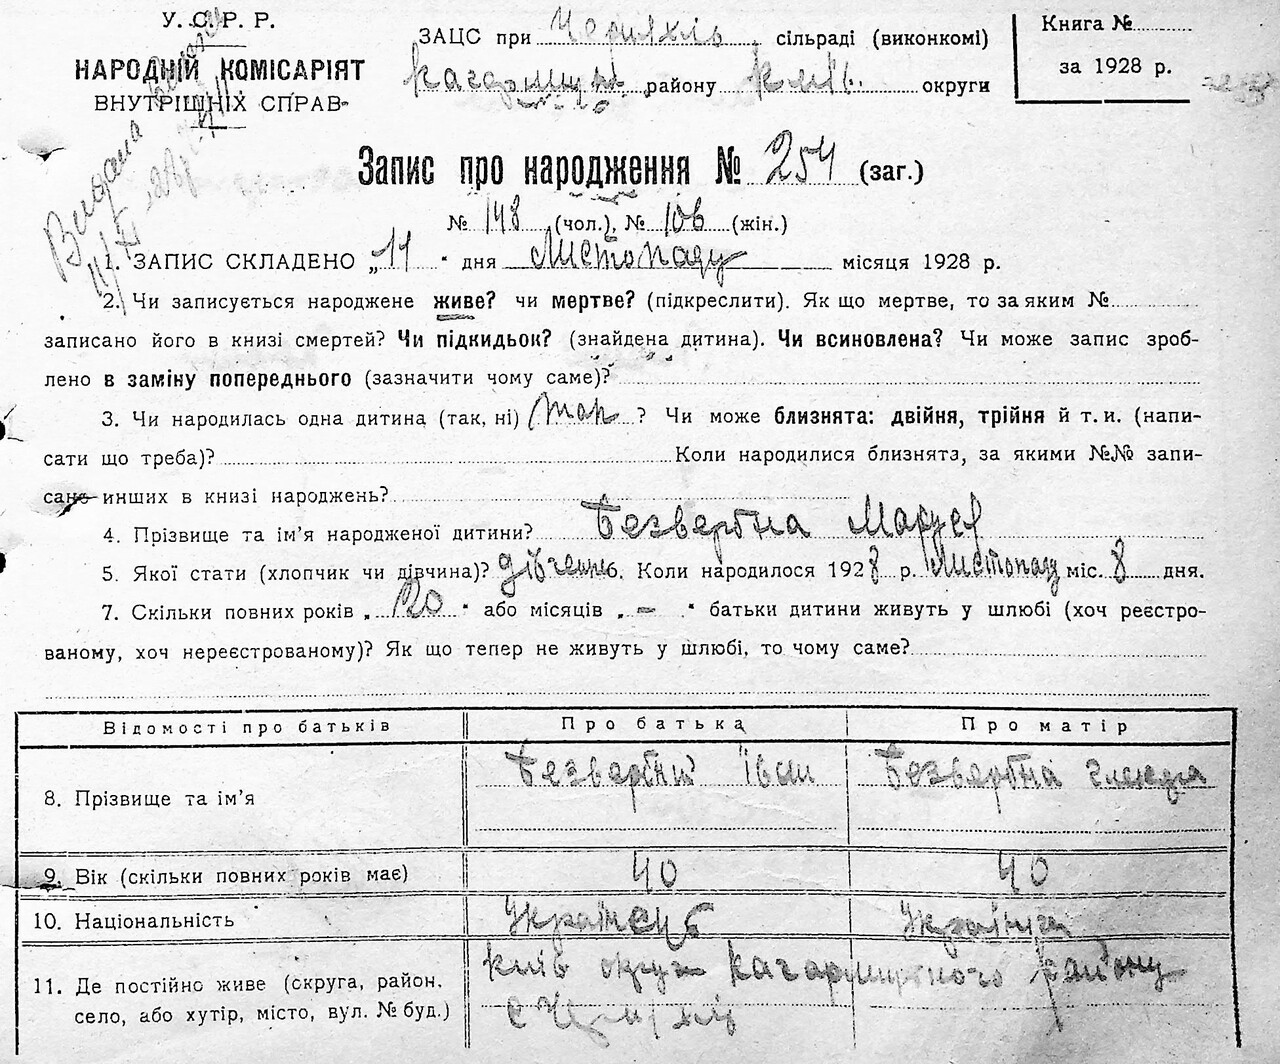 У. С. Р. Р.
НАРОДНІЙ КОМІСАРІЯТ
ВНУТРІШНІХ СПРАВ
Видана
ЗАЦС при Черняхів сільраді (виконкомі)
Кагармицьк. району Київ. округи
Книга №
за 1928 р.
Запис про народження № 254 (заг.)
№ 148 (чол.), № 106 (жін.)
1. ЗАПИС СКЛАДЕНО „11" дня Листопаду місяця 1928 р.
2. Чи записується народжене живе? чи мертве? (підкреслити). Як що мертве, то за яким №
записано його в книзі смертей? Чи підкидьок? (знайдена дитина). Чи всиновлена? Чи може запис зроб-
лено в заміну попереднього (зазначити чому саме)?
3. Чи народилась одна дитина (так, ні) так ? Чи може близнята: двійня, трійня й т. и. (напи-
сати що треба)? Коли народилися близнята, за якими №№ запи-
сано инших в книзі народжень?
4. Прізвище та ім'я народженої дитини? Безвербна Маруся
5. Якої стати (хлопчик чи дівчина)? дівчина 6. Коли народилося 1928 р. Листопаду міс. 8 дня.
7. Скільки повних років „ 20 " або місяців „ – " батьки дитини живуть у шлюбі (хоч реєстро-
ваному, хоч нереєстрованому)? Як що тепер не живуть у шлюбі, то чому саме?
Відомості про батьків Про батька Про матір
8. Прізвище та ім'я Безвербний Іван Безвербна
9. Вік (скільки повних років має) 40 40
10. Національність Українець Українка
11. Де постійно живе (округа, район, село, або хутір, місто, вул. № буд.) Київ округи Кагармицького району
с Черняхів